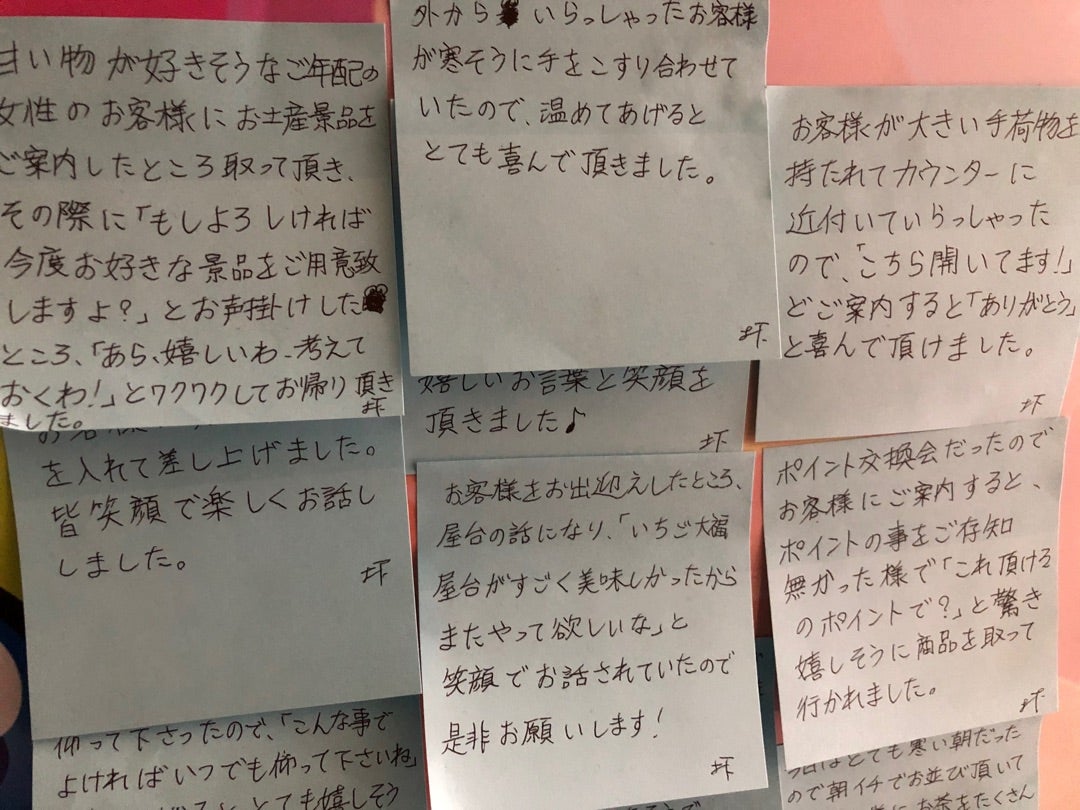 甘い物が好きそうなご年配の
女性のお客様にお土産景品を
ご案内したところ取って頂き、
その際に「もしよろしければ
今度お好きな景品をご用意致
しますよ?」とお声掛けした
ところ、「あら、嬉しいわ、考えて
おくわ!」とワクワクしてお帰り頂き
ました。
坏
外から いらっしゃったお客様
が寒そうに手をこすり合わせて
いたので、温めてあげると
とても喜んで頂きました。
坏
お客様が大きい手荷物を
持たれてカウンターに
近付いていらっしゃった
ので、「こちら開いてます!」
どご案内すると「ありがとう」
と喜んで頂けました。
坏
嬉しいお言葉と笑顔を
頂きました♪
坏
を入れて差し上げました。
皆笑顔で楽しくお話し
しました。
坏
お客様をお出迎えしたところ、
屋台の話になり、「いちご大福
屋台がすごく美味しかったから
またやって欲しいな」と
笑顔でお話されていたので
是非お願いします!
坏
ポイント交換会だったので
お客様にご案内すると、
ポイントの事をご存知
無かった様で「これ頂ける
のポイントで?」と驚き
嬉しそうに商品を取って
行かれました。
坏
仰って下さったので、「こんな事で
よければいつでも仰って下さいね」
とても嬉しそう
今日はとても寒い朝だった
ので朝イチでお並び頂いて
お茶をたくさん